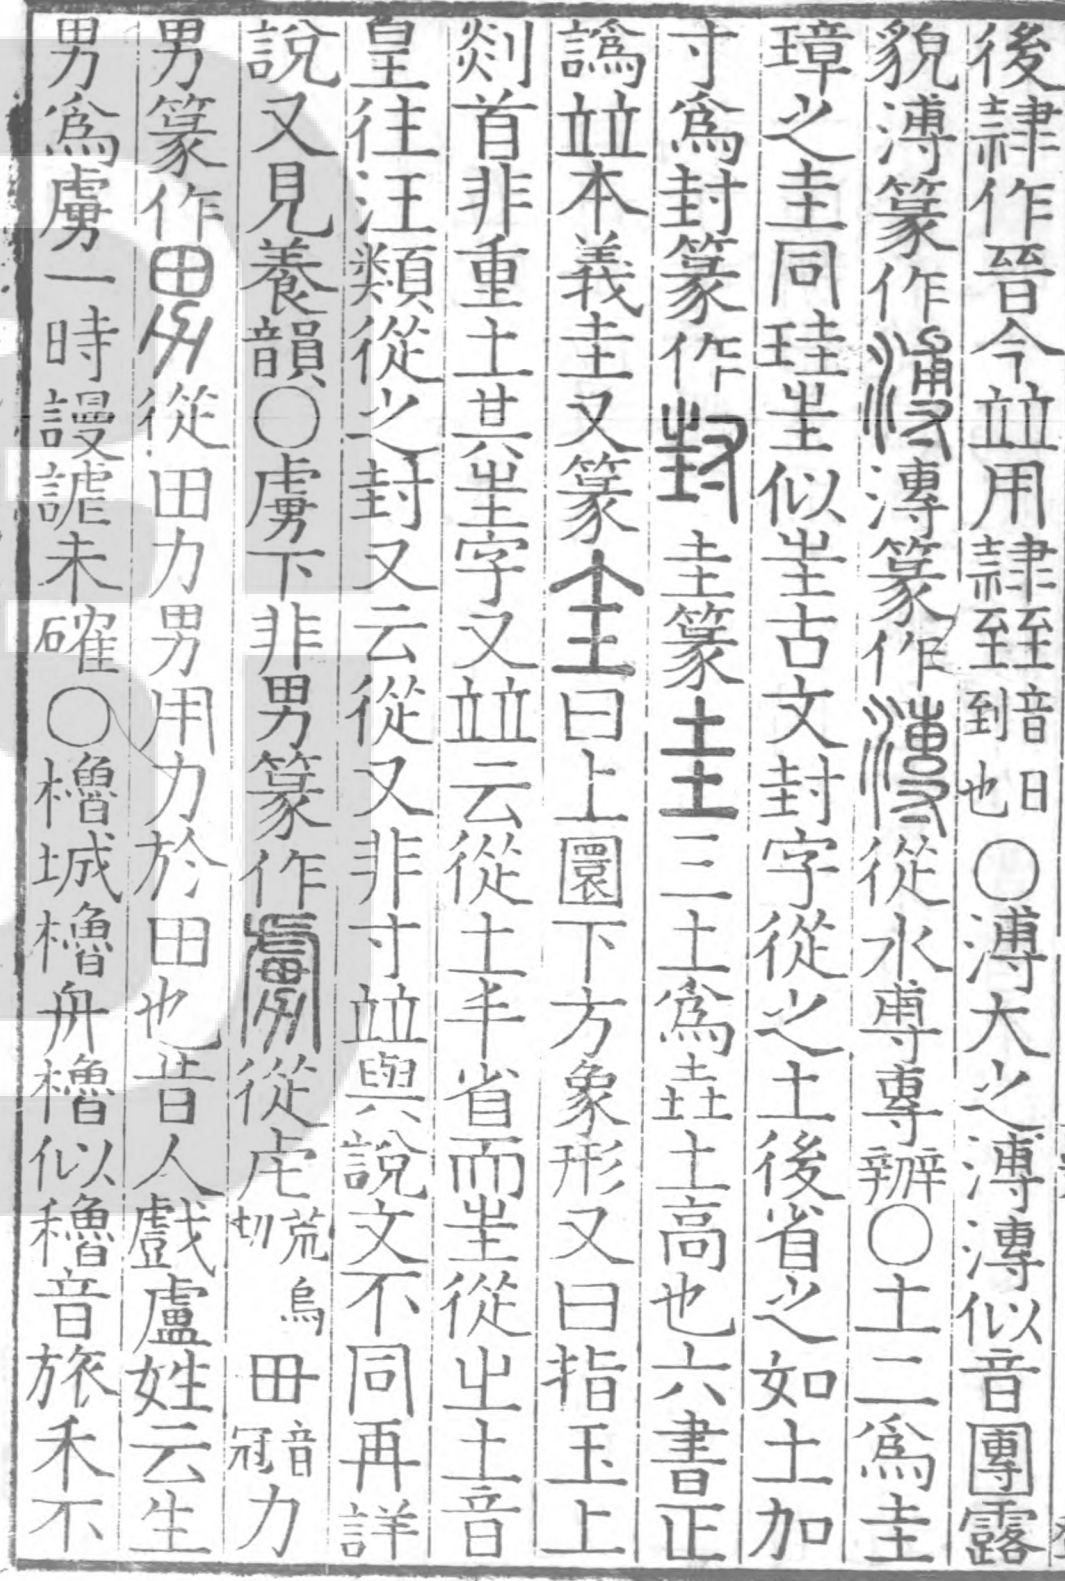 後隸作晉今並用隸臸音日到也○溥大之溥漙似音團露
貌溥篆作漙篆作從水尃專辦○土二爲圭
璋之圭同珪㞷似㞷古文封字從之土後省之如土加
寸爲封篆作圭篆三土爲垚土高也六書正
譌並本義圭又篆曰上圜下方象形又曰指玉上
剡首非重土其㞷字又並云從土丰省而㞷從㞢土音
皇往汪類從之封又云從又非寸並與說文不同再詳
說又見養韻○虜下非男篆作從虍荒烏切毌音冠力
男篆作從田力男用力於田也昔人戲盧姓云生
男爲虜一時謾謔未確○櫓城櫓舟櫓似穭音旅禾不